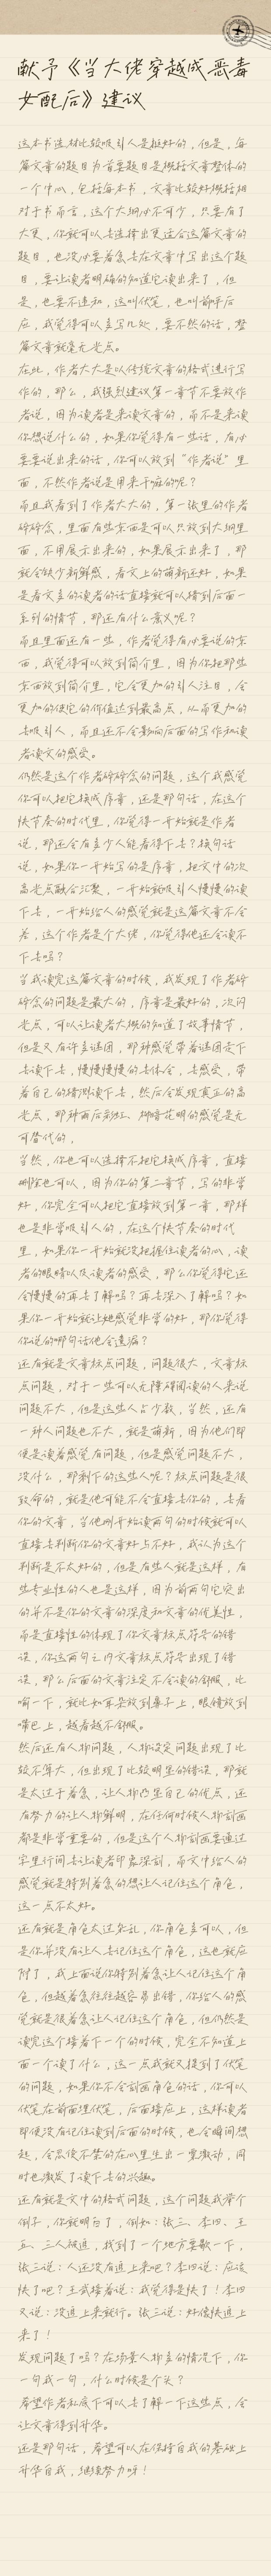 献予《当大佬穿越成恶毒
女配后》建议
这本书选材比较吸引人是挺好的，但是，每
篇文章的题目为首要题目是概括文章整体的
一个中心，包括每本书，文章比较好概括相
对于书而言，这个大纲必不可少，只要有了
大更，你就可以去选择出更适合这篇文章的
题目，也没必要着急去在文章中写出这个题
目，要让读者明确的知道它读出来了，但
是，也要不违和，这叫伏笔，也叫前呼后
应，我觉得可以多写几处，要不然的话，整
篇文章就毫无光点。
在此，作者大大是以传统文章的格式进行写
作的，那么，我强烈建议第一章节不要放作
者说，因为读者是来读文章的，而不是来读
你想说什么的，如果你觉得有一些话，有必
要要说出来的话，你可以放到“作者说”里
面，不然作者说是用来干嘛的呢？
而且我看到了作者大大的，第一张里的作者
碎碎念，里面有些东西是可以只放到大纲里
面，不用展示出来的，如果展示出来了，那
就会缺少新鲜感，看文上的萌新还好，如果
是看文多的读者的话直接就可以猜到后面一
系列的情节，那还有什么意义呢？
而且里面还有一些，作者觉得有必要说的东
西，我觉得可以放到简介里，因为你把那些
东西放到简介里，它会更加的引人注目，会
更加的使它的价值达到最高点，从而更加的
去吸引人，而且还不会影响后面的写作和读
者读文的感受。
仍然是这个作者碎碎念的问题，这个我感觉
你可以把它换成序章，还是那句话，在这个
快节奏的时代里，你觉得一开始就是作者
说，那还会有多少人能看得下去？换句话
说，如果你一开始写的是序章，把文中的次
高光点融合汇聚，一开始就吸引人慢慢的读
下去，一开始给人的感觉就是这篇文章不会
差，这个作者是个大佬，你觉得他还会读不
下去吗？
当我读完这篇文章的时候，我发现了作者碎
碎念的问题是最大的，序章是最好的，次闪
光点，可以让读者大概的知道了故事情节，
但是又有许多谜团，那种感觉带着谜团走下
去读下去，慢慢慢慢的去体会，去感受，带
着自己的猜测读下去，然后会发现真正的高
光点，那种雨后彩虹、柳暗花明的感觉是无
可替代的，
当然，你也可以选择不把它换成序章，直接
删除也可以，因为你的第二章节，写的非常
好，你完全可以把它直接放到第一章，那样
也是非常吸引人的，在这个快节奏的时代
里，如果你一开始就没把握住读者的心，读
者的眼睛以及读者的感受，那么你觉得它还
会慢慢的再去了解吗？再去深入了解吗？如
果你一开始就让她感觉非常的好，那你觉得
你说的哪句话他会遗漏？
还有就是文章标点问题，问题很大，文章标
点问题，对于一些可以无障碍阅读的人来说
问题不大，但是这些人占少数，当然，还有
一种人问题也不大，就是萌新，因为他们即
便是读着感觉有问题，但是感觉问题不大，
没什么，那剩下的这些人呢？标点问题是很
致命的，就是他可能不会直接去你的，去看
你的文章，当他刚开始读两句的时候就可以
直接去判断你的文章好与不好，我认为这个
判断是不太好的，但是有些人就是这样，有
些专业性的人也是这样，因为前两句它突出
的并不是你的文章的深度和文章的优美性，
而是直接性的体现了你文章标点符号的错
误，你这两句之内文章标点符号出现了错
误，那么后面的文章注定不会读的舒服，比
喻一下，就比如耳朵放到鼻子上，眼镜放到
嘴巴上，越看越不舒服。
然后还有人物问题，人物设定问题出现了比
较不算大，但出现了比较明显的错误，那就
是太过于着急，让人物凸显自己的优点，还
有努力的让人物鲜明，在任何时候人物刻画
都是非常重要的，但是这个人物刻画要通过
字里行间去让读者印象深刻，而文中给人的
感觉就是特别着急的想让人记住这个角色，
这一点不太好。
还有就是角色太过杂乱，你角色多可以，但
是你并没有让人去记住这个角色，这也就应
附了，我上面说你特别着急让人记住这个角
色，但越着急往往越容易出错，你给人的感
觉就是很着急让人记住这个角色，但仍然是
读完这个接着下一个的时候，完全不知道上
面一个读了什么，这一点我就又提到了伏笔
的问题，如果你不会刻画角色的话，你可以
伏笔在前面埋伏笔，后面接应上，这样读者
即便没有记住读到后面的时候，也会瞬间想
起，会忍俊不禁的在心里生出一丝激动，同
时也激发了读下去的兴趣。
还有就是文中的格式问题，这个问题我举个
例子，你就明白了，例如：张三、李四、王
五、三人被追，找到了一个地方要歇一下，
张三说：人还没有追上来吧？李四说：应该
快了吧？王武接着说：我觉得是快了！李四
又说：没追上来就行。张三说：好像快追上
来了！
发现问题了吗？在场景人物多的情况下，你
一句我一句，什么时候是个头？
希望作者私底下可以去了解一下这些点，会
让文章得到升华。
还是那句话，希望可以在保持自我的基础上
升华自我，继续努力呀！